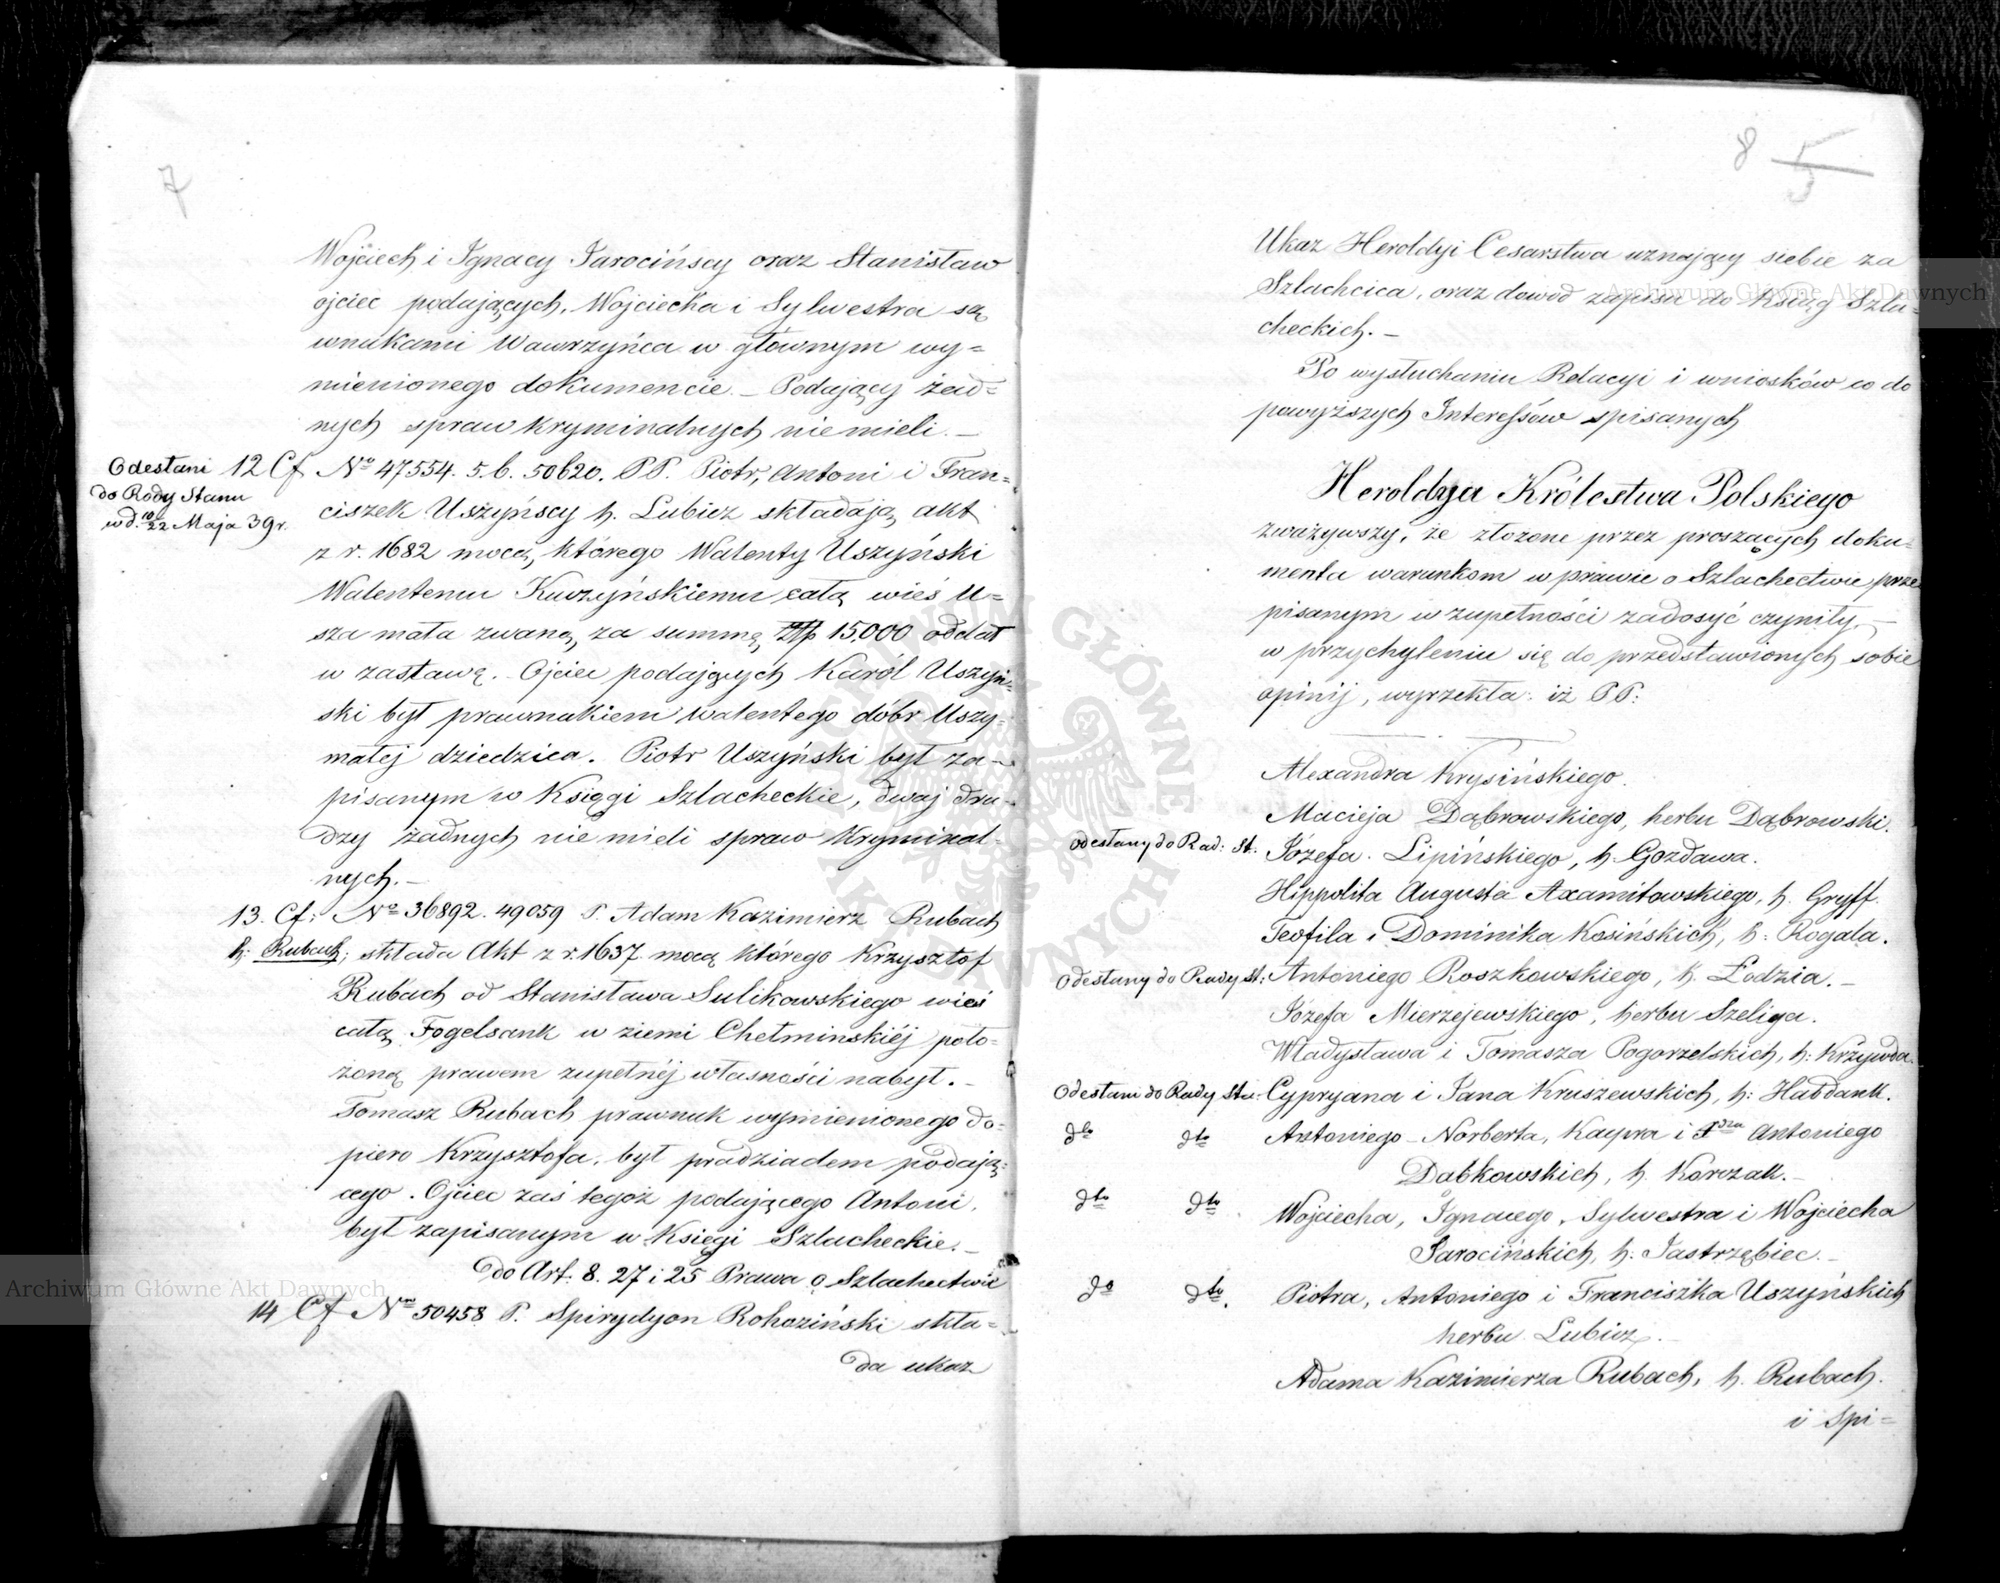 7
Wojciech i Ignacy Jarocińscy oraz Stanisław
ojciec podających, Wojciecha i Sylwestra są
wnukami Wawrzyńca w głównym wy=
mienionego dokumencie. – Podający żad=
nych spraw kryminalnych nie mieli. –
Odesłani
do Rady Stanu
w d. 10/22 Maja 39 r.
12 Cf Nº 47554. 5.6. 50620. PP. Piotr, Antoni i Fran=
ciszek Uszyńscy h. Lubicz składają akt
z r. 1682 mocą którego Walenty Uszyński
Walentemu Kuczyńskiemu całą wieś U=
sza mała zwaną, za summę Złp 15,000 oddał
w zastawę. – Ojciec podających Karól Uszyń=
ski był prawnukiem Walentego dóbr Uszy
małej dziedzica. Piotr Uszyński był za=
pisanym w Księgi Szlacheckie, dwaj dru=
dzy żadnych nie mieli spraw Kryminal=
nych. –
13. Cf: Nº 36892. 49059 P. Adam Kazimierz Rubach
h: Rubach; składa Akt z r. 1637. mocą którego Krzysztof
Rubach od Stanisława Sulikowskiego wieś
całą Fogelsank w ziemi Chełminskiéj poło=
żoną prawem zupełnéj własności nabył. –
Tomasz Rubach prawnuk wymienionego do=
piero Krzysztofa, był pradziadem podają=
cego. Ojciec zaś tegoż podającego Antoni,
był zapisanym w Księgi Szlacheckie. –
do Art: 8. 27 i 25 Prawa o Szlachectwie
14 Cf Nº 50458 P. Spirydyon Rohoziński skła=
da ukaz
8 5
Ukaz Heroldyi Cesarstwa uznający siebie za
Szlachcica, oraz dowód zapisu do Ksiąg Szla=
checkich. –
Po wysłuchaniu Relacyi i wniosków co do
powyższych Interessów spisanych
Heroldya Królestwa Polskiego
zważywszy, że złożone przez proszących doku=
menta warunkom w prawie o Szlachectwie prze
pisanym w zupełności zadosyć czyniły, –
w przychyleniu się do przedstawionych sobie
opinij, wyrzekła: iż PP:
Alexandra Krysińskiego.
Macieja Dąbrowskiego, herbu Dąbrowski.
odesłany do Rad: St: Józefa Lipińskiego, h. Gozdawa.
Hippolita Augusta Axamitowskiego, h. Gryff.
Teofila i Dominika Kosińskich, h: Rogala.
Odesłany do Rady St: Antoniego Roszkowskiego, h. Łodzia. –
Józefa Mierzejewskiego, herbu Szeliga.
Władysława i Tomasza Pogorzelskich, h: Krzywda.
Odesłani do Rady Sta: Cypryana i Jana Kruszewskich, h: Habdank.
dto dto Antoniego – Norberta, Kacpra i Antoniego
Dabkowskich, h. Korczak. –
dto dto. Wojciecha, Ignacego, Sylwestra i Wojciecha
Jarocińskich, h: Jastrzębiec. –
do dto. Piotra, Antoniego i Franciszka Uszyńskich
herbu Lubicz. –
Adama Kazimierza Rubach, h. Rubach.
i Spi=
Archiwum Główne Akt Dawnych
Archiwum Główne Akt Dawnych
ARCHIWUM GŁÓWNE AKT DAWNYCH